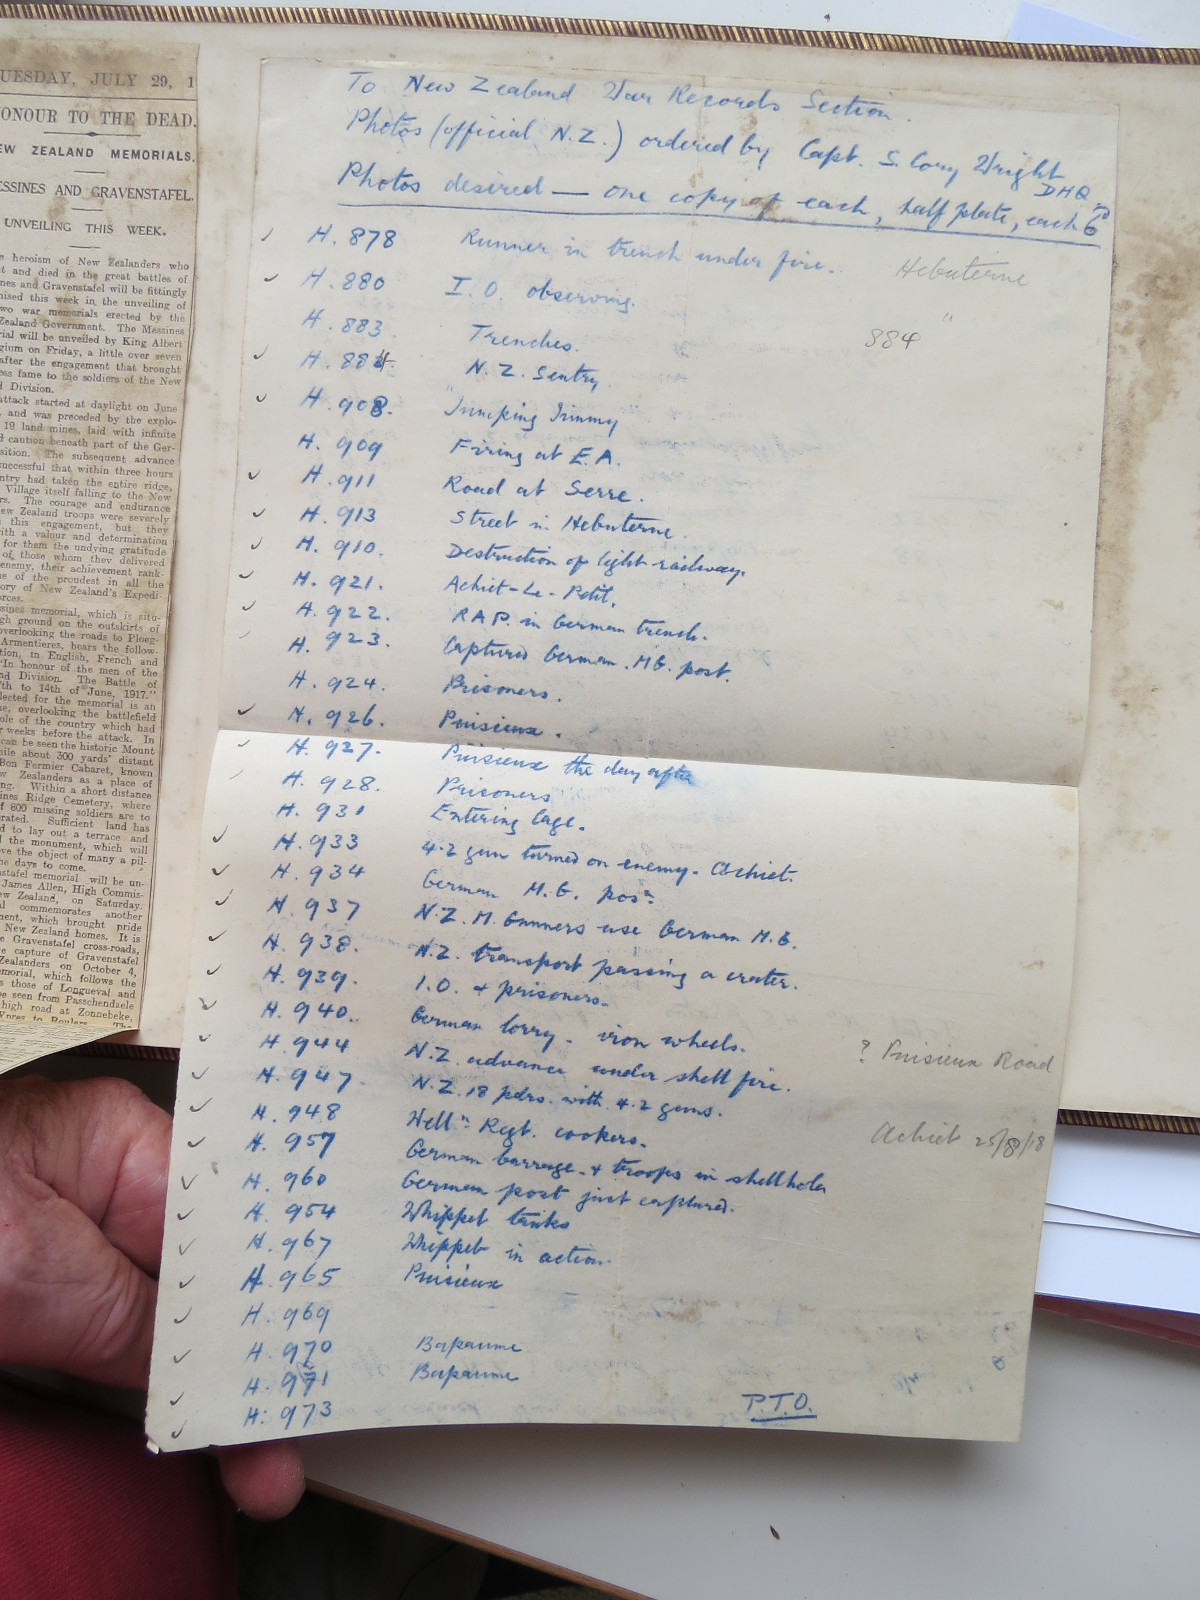 TUESDAY, JULY 29, 1
HONOUR TO THE DEAD.
NEW ZEALAND MEMORIALS.
MESSINES AND GRAVENSTAFEL.
UNVEILING THIS WEEK.
heroism of New Zealanders who
and died in the great battles of
nes and Gravenstafel will be fittingly
nised this week in the unveiling of
two war memorials erected by the
Zealand Government. The Messines
rial will be unveiled by King Albert
gium on Friday, a little over seven
after the engagement that brought
ess fame to the soldiers of the New
d Division.
attack started at daylight on June
and was preceded by the explo-
19 land mines, laid with infinite
d caution beneath part of the Ger-
sition. The subsequent advance
successful that within three hours
ntry had taken the entire ridge,
Village itself falling to the New
rs. The courage and endurance
ew Zealand troops were severely
this engagement, but they
with a valour and determination
for them the undying gratitude
of those whom they delivered
enemy, their achievement rank-
ne of the proudest in all the
ory of New Zealand's Expedi-
orces.
ssines memorial, which is situ-
gh ground on the outskirts of
overlooking the roads to Ploeg-
Armentieres, bears the follow-
tion, in English, French and
"In honour of the men of the
nd Division. The Battle of
7th to 14th of June, 1917."
lected for the memorial is an
ne, overlooking the battlefield
ole of the country which had
weeks before the attack. In
can be seen the historic Mount
hile about 300 yards' distant
Bon Fermier Cabaret, known
w Zealanders as a place of
ng. Within a short distance
ines Ridge Cemetery, where
f 600 missing soldiers are to
rated. Sufficient land has
d to lay out a terrace and
the monument, which will
ve the object of many a pil-
he days to come.
stafel memorial will be un-
James Allen, High Commis-
ew Zealand, on Saturday.
al commemorates another
ment, which brought pride
New Zealand homes. It is
e Gravenstafel cross-roads,
e capture of Gravenstafel
Zealanders on October 4,
morial, which follows the
s those of Longueval and
be seen from Passchendaele
high road at Zonnebeke,
Ypres to Roulers. The
To New Zealand War Records Section.
Photos (official N.Z.) ordered by Capt. S. Cory Wright
DHQ
Photos desired — one copy of each, half plate, each 6d
H. 878 Runner in trench under fire. Hebuterne
H. 880 I.O. observing.
H. 883 Trenches. 884 "
H. 884 N.Z. Sentry
H. 908. "Jumping Jimmy
H. 909 Firing at E.A.
H. 911 Road at Serre.
H. 913 Street in Hebuterne.
H. 910. Destruction of light railway.
H. 921. Achiet-Le-Petit.
H. 922. R.A.P. in German trench.
H. 923. Captured German. M.G. post.
H. 924. Prisoners.
H. 926. Puisieux.
H. 927. Puisieux the day after
H. 928. Prisoners
H. 931 Entering Cage.
H. 933 4.2 gun turned on enemy. Achiet.
H. 934 German M.G. posn.
H. 937 N.Z. M. Gunners use German M.G.
H. 938. N.Z. transport passing a crater.
H. 939. I.O. + prisoners.
H. 940. German lorry. iron wheels.
H. 944 N.Z. advance under shell fire. ? Puisieux Road
H. 947. N.Z. 18 pdrs. with 4.2 guns.
H. 948 Welln. Regt. cookers. Achiet 25/8/18
H. 957 German barrage. + troops in shellholes
H. 960 German post just captured.
H. 954 Whippet tanks
H. 967 Whippet in action.
H. 965 Puisieux
H. 969
H. 970 Bapaume
H. 971 Bapaume
H. 973
P.T.O.